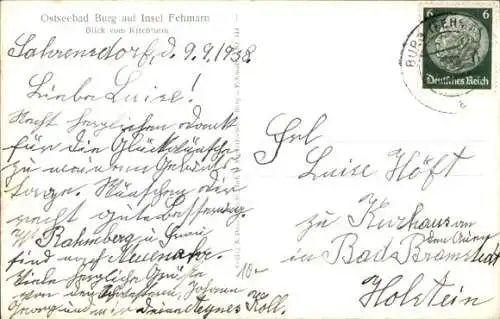 Ostseebad Burg auf Insel Fehmarn
Blick vom Kirchturm
Sahrensdorf, d. 9.9.1938.
Liebe Luise!
Recht herzlichen Dank
für die Glückwünsche
zu meinem Geburts
tage. Wünschen dir
recht gute Besserung.
W. Rahmberg u. Frau
sind nach Neuenahr.
Viele herzliche Grüße
von den Johannes
Georg und
Koll.
10.-
Frl.
Luise Höft
zu Kurhaus am
in Bad Bramstedt
Holstein
6 6
Deutsches Reich
BURG (FEHMARN)